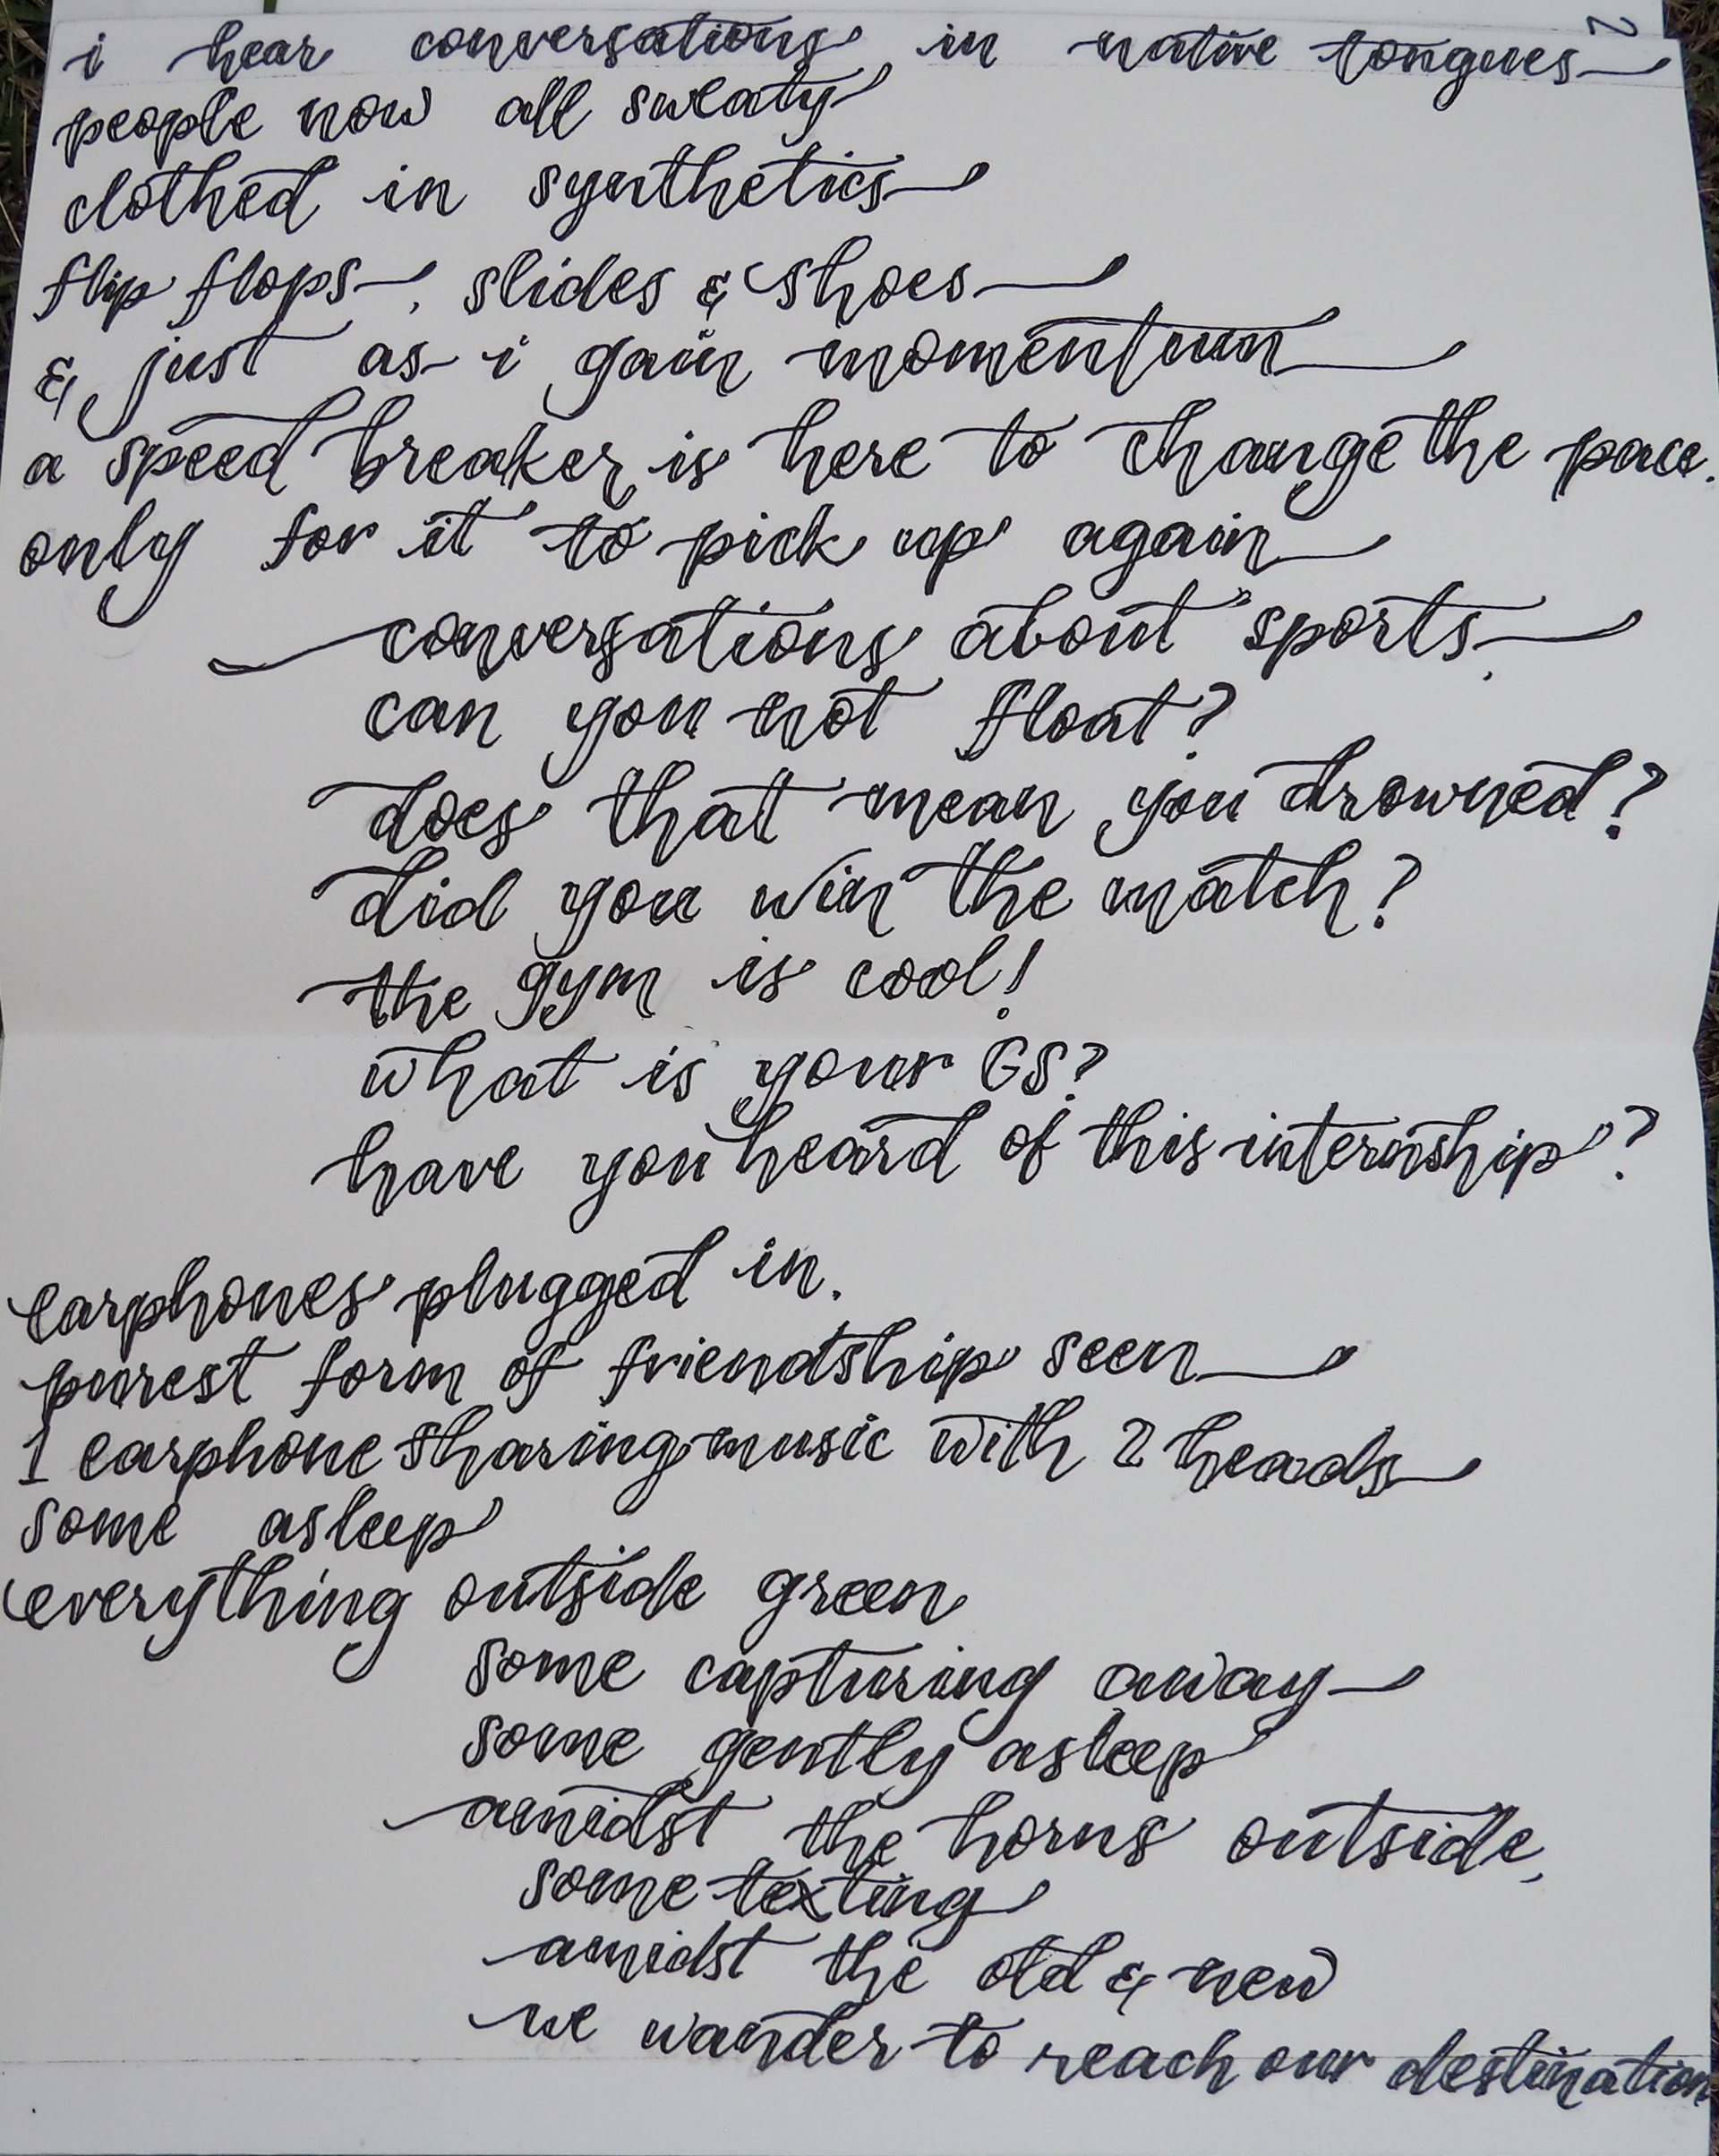 2
i hear conversations in native tongues
people now all sweaty
clothed in synthetics
flip flops, slides & shoes
& just as i gain momentum
a speed breaker is here to change the pace.
only for it to pick up again
conversations about sports,
can you not float?
does that mean you drowned?
did you win the match?
the gym is cool!
what is your GS?
have you heard of this internship?
earphones plugged in.
purest form of friendship seen
1 earphone sharing music with 2 heads
some asleep
everything outside green
some capturing away
some gently asleep
amidst the horns outside,
some texting
amidst the old & new
we wander to reach our destination